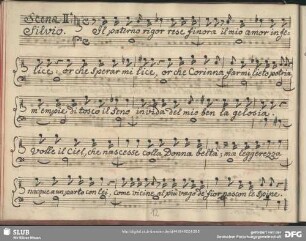 Scena II.
Silvio. Il paterno rigor rese finora il mio amor infe-
lice, or che sperar mi lice, or che Corinna farmi lieto potria
m'empie di tosco il seno invida del mio ben la gelosia;
Volle il Ciel, che nascesse colla Donna beltà; ma leggerezza
nacque a un parto con lei, come vicine al più vago de fior nascon le Spine.
12
SLUB
Wir führen Wissen.
gefördert von der
Deutschen Forschungsgemeinschaft
DFG